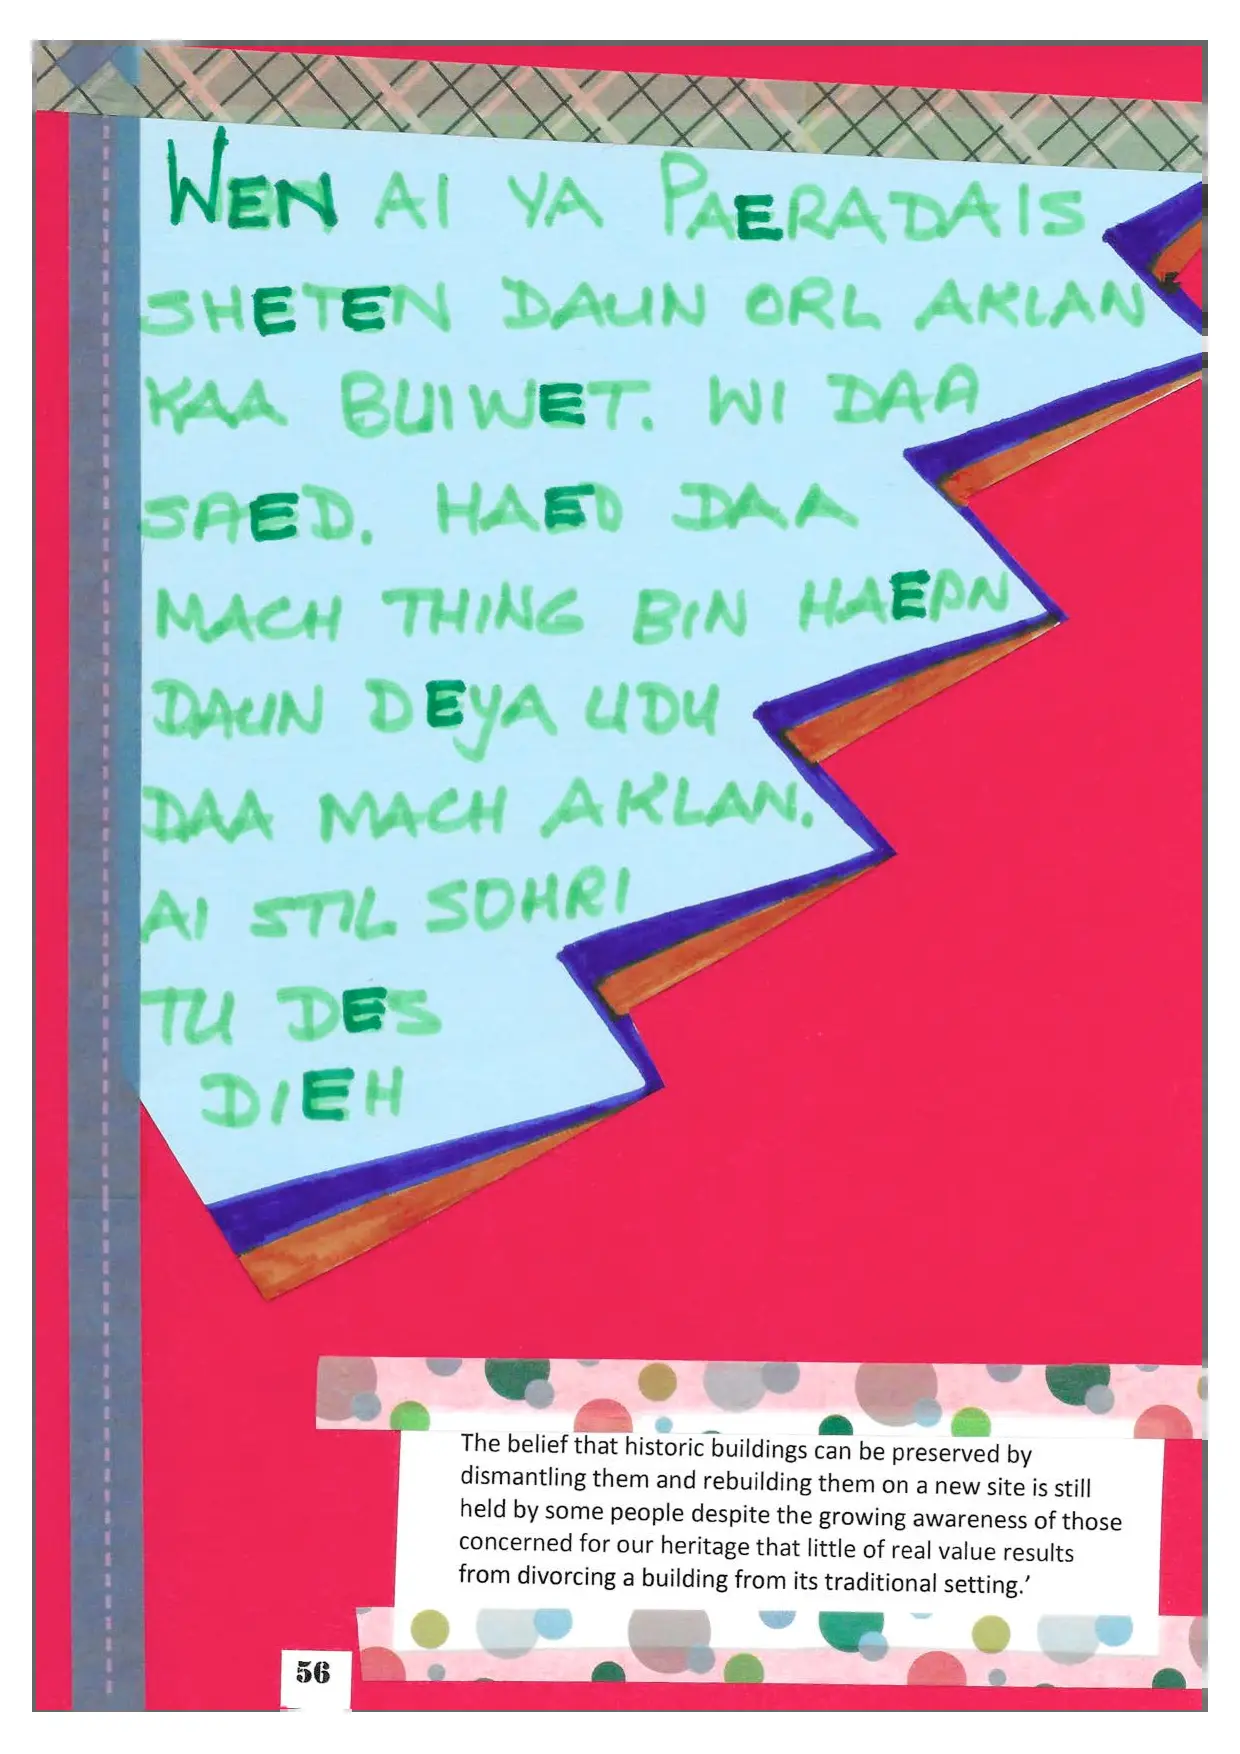 WEN AI YA PAERADAIS
SHETEN DAUN ORL AKLAN
KAA BUIWET. WI DAA
SAED. HAED DAA
MACH THING BIN HAEPN
DAUN DEYA UDU
DAA MACH AKLAN.
AI STIL SOHRI
TU DES
DIEH
The belief that historic buildings can be preserved by
dismantling them and rebuilding them on a new site is still
held by some people despite the growing awareness of those
concerned for our heritage that little of real value results
from divorcing a building from its traditional setting.’
56